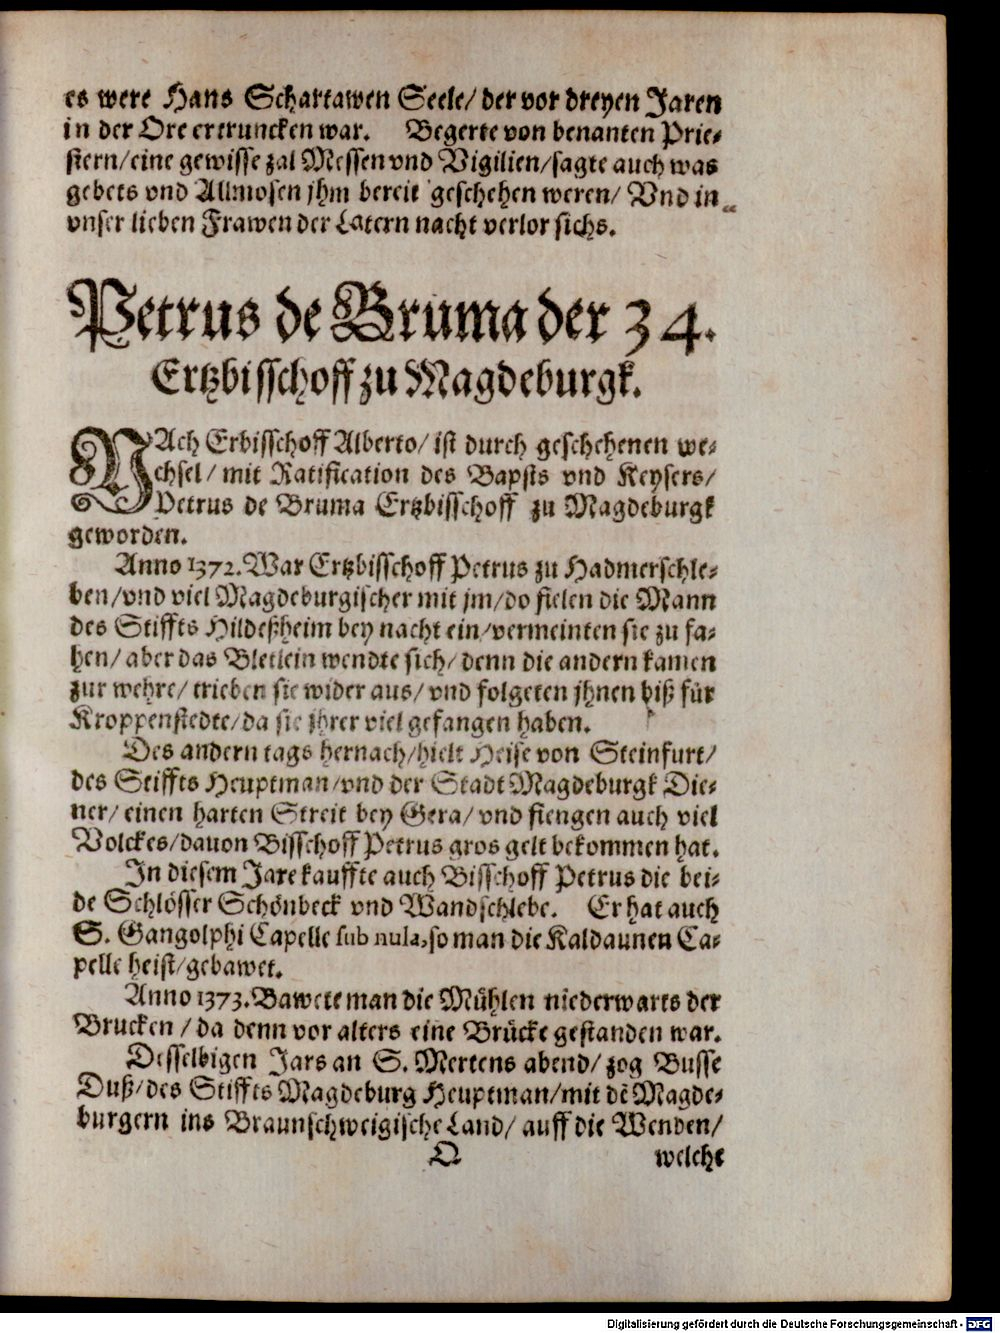 es were Hans Schartawen Seele/ der vor dreyen Jaren
in der Ore ertruncken war. Begerte von benanten Prie-
stern/ eine gewisse zal Messen vnd Vigilien/ sagte auch was
gebets vnd Allmosen jhm bereit geschehen weren/ Vnd in
vnser lieben Frawen der Latern nacht verlor sichs.
Petrus de Bruma der 34.
Ertzbisschoff zu Magdeburgk.
NAch Erbisschoff Alberto/ ist durch geschehenen we-
chsel/ mit Ratification des Bapsts vnd Keysers/
Petrus de Bruma Ertzbisschoff zu Magdeburgk
geworden.
Anno 1372. War Ertzbisschoff Petrus zu Hadmerschle-
ben/ vnd viel Magdeburgischer mit jm/ do fielen die Mann
des Stiffts Hildeßheim bey nacht ein/ vermeinten sie zu fa-
hen/ aber das Bletlein wendte sich/ denn die andern kamen
zur wehre/ trieben sie wider aus/ vnd folgeten jhnen biß für
Kroppenstedte/ da sie jhrer viel gefangen haben.
Des andern tags hernach/ hielt Heise von Steinfurt/
des Stiffts Heuptman/ vnd der Stadt Magdeburgk Die-
ner/ einen harten Streit bey Gera/ vnd fiengen auch viel
Volckes/ dauon Bisschoff Petrus gros gelt bekommen hat.
In diesem Jare kauffte auch Bisschoff Petrus die bei-
de Schlösser Schönbeck vnd Wandschlebe. Er hat auch
S. Gangolphi Capelle sub nula, so man die Kaldaunen Ca-
pelle heist/ gebawet.
Anno 1373. Bawete man die Mühlen niederwarts der
Brucken / da denn vor alters eine Brücke gestanden war.
Desselbigen Jars an S. Mertens abend/ zog Busse
Duß/ des Stiffts Magdeburg Heuptman/ mit dē Magde-
burgern ins Braunschweigische Land/ auff die Wenden/
O welche
Digitalisierung gefördert durch die Deutsche Forschungsgemeinschaft - DFG